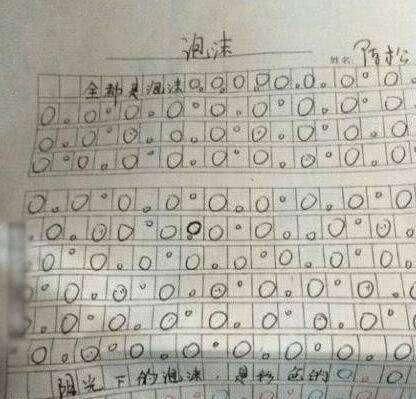 泡沫
姓名
全都是泡沫
阳光下的泡沫，是彩色的